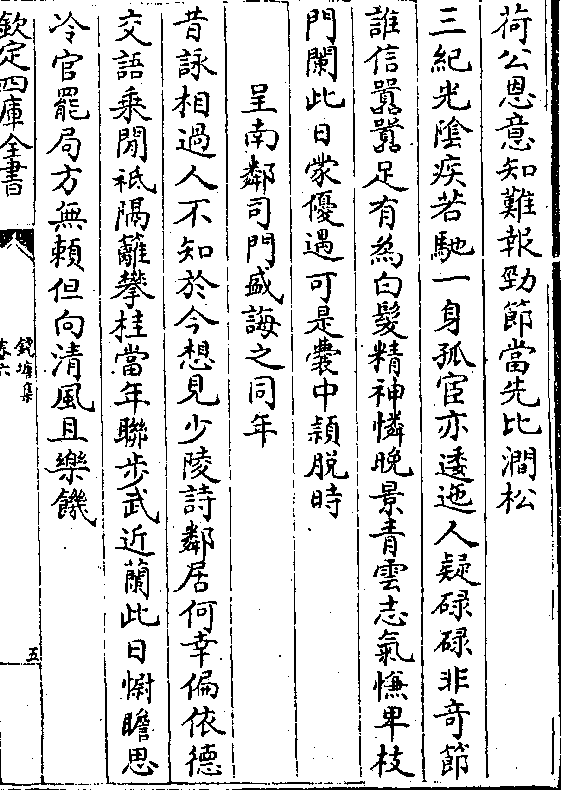 荷公恩意知難報勁節當先比澗松
三紀光陰疾若馳一身孤宦亦逶迤人疑碌碌非奇節
誰信嚣嚣足有為白髮精神憐晚景青雲志氣慊卑枝
門闌此日蒙優遇可是囊中頴脱時
呈南鄰司門盛誨之同年
昔詠相過人不知於今想見少陵詩鄰居何幸偏依德
交語乗閒祗隔籬攀桂當年聯步武近蘭此日慰瞻思
冷官罷局方無賴但向清風且樂饑
欽定四庫全書
錢塘集
卷六
五